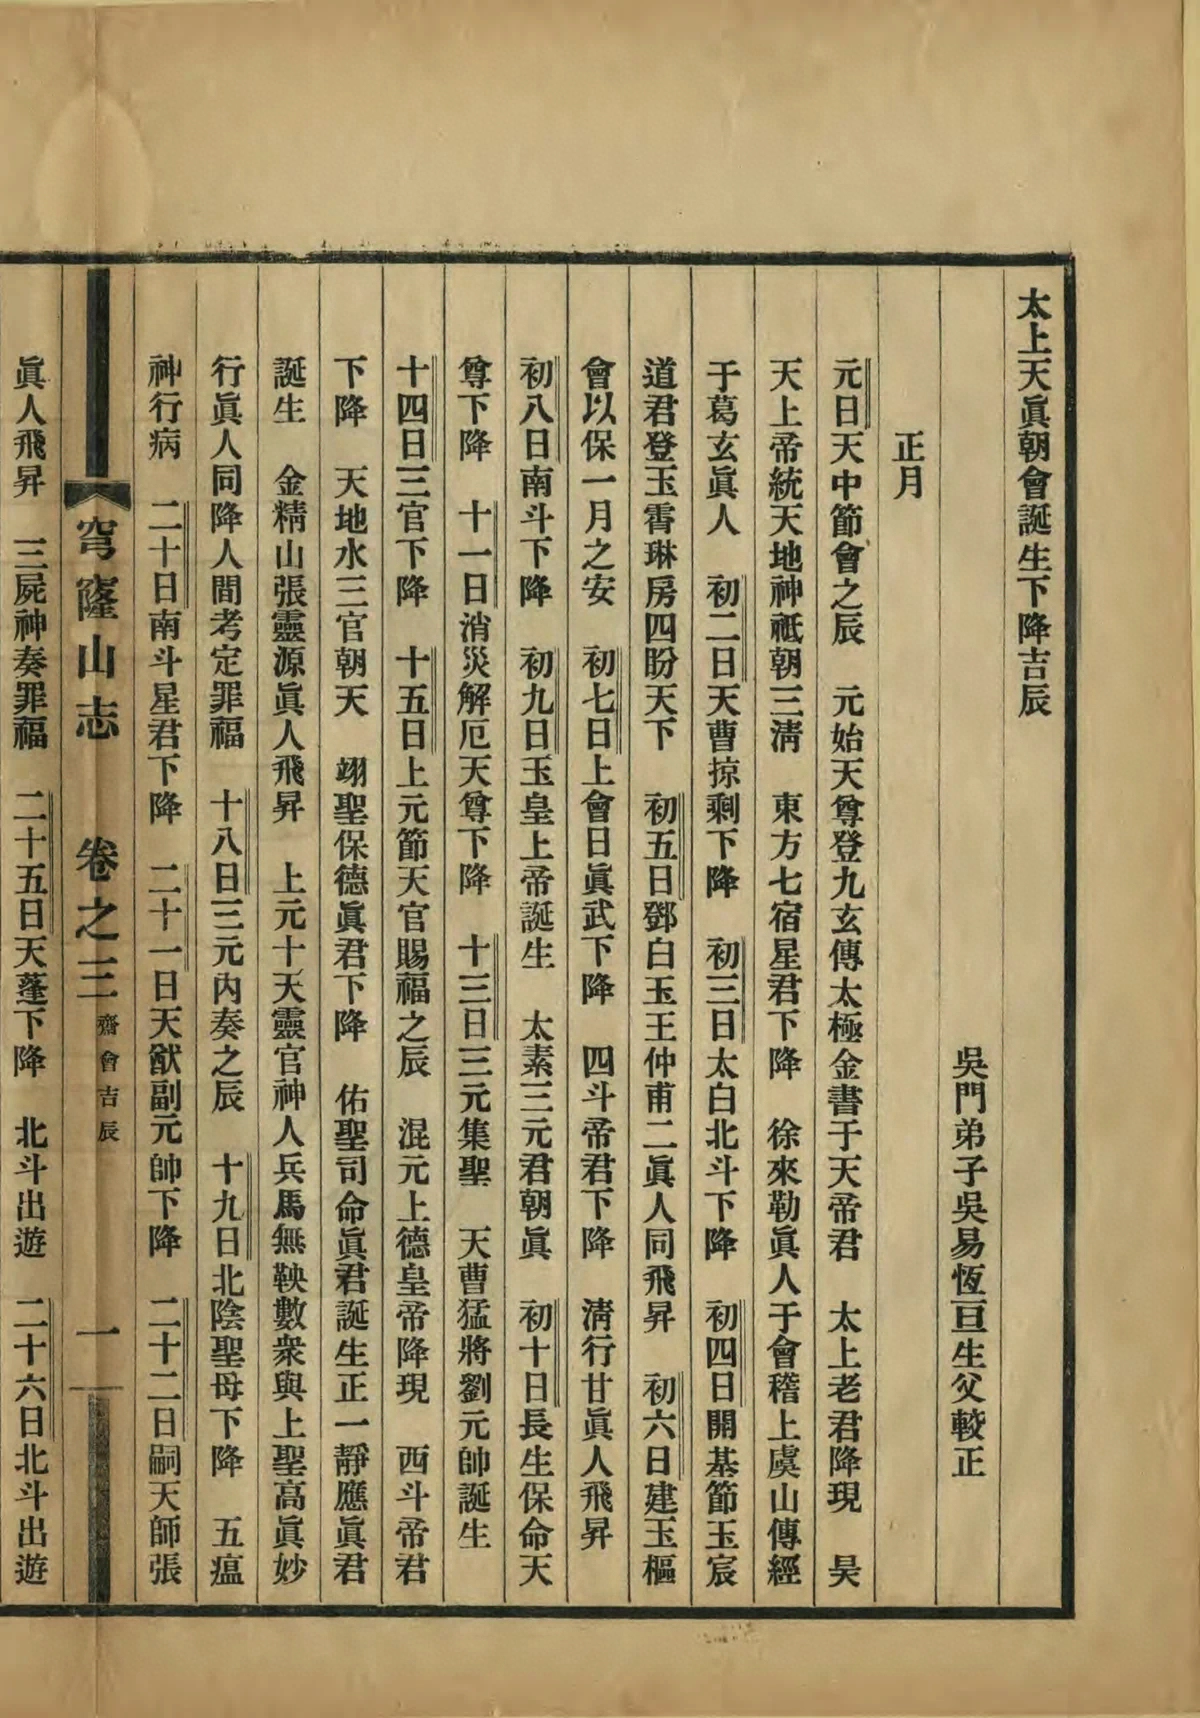 太上天眞朝會誕生下降吉辰
吳門弟子吳易恆亘生父較正
正月
元日天中節會之辰　元始天尊登九玄傳太極金書于天帝君　太上老君降現　昊
天上帝統天地神祇朝三淸　東方七宿星君下降　徐來勒眞人于會稽上虞山傳經
于葛玄眞人　初二日天曹掠剩下降　初三日太白北斗下降　初四日開基節玉宸
道君登玉霄琳房四盼天下　初五日鄧白玉王仲甫二眞人同飛昇　初六日建玉樞
會以保一月之安　初七日上會日眞武下降　四斗帝君下降　淸行甘眞人飛昇
初八日南斗下降　初九日玉皇上帝誕生　太素三元君朝眞　初十日長生保命天
尊下降　十一日消災解厄天尊下降　十三日三元集聖　天曹猛將劉元帥誕生
十四日三官下降　十五日上元節天官賜福之辰　混元上德皇帝降現　西斗帝君
下降　天地水三官朝天　翊聖保德眞君下降　佑聖司命眞君誕生正一靜應眞君
誕生　金精山張靈源眞人飛昇　上元十天靈官神人兵馬無鞅數衆與上聖高眞妙
行眞人同降人間考定罪福　十八日三元內奏之辰　十九日北陰聖母下降　五瘟
神行病　二十日南斗星君下降　二十一日天猷副元帥下降　二十二日嗣天師張
穹窿山志　卷之三　齋會吉辰　一
眞人飛昇　三屍神奏罪福　二十五日天蓬下降　北斗出遊　二十六日北斗出遊